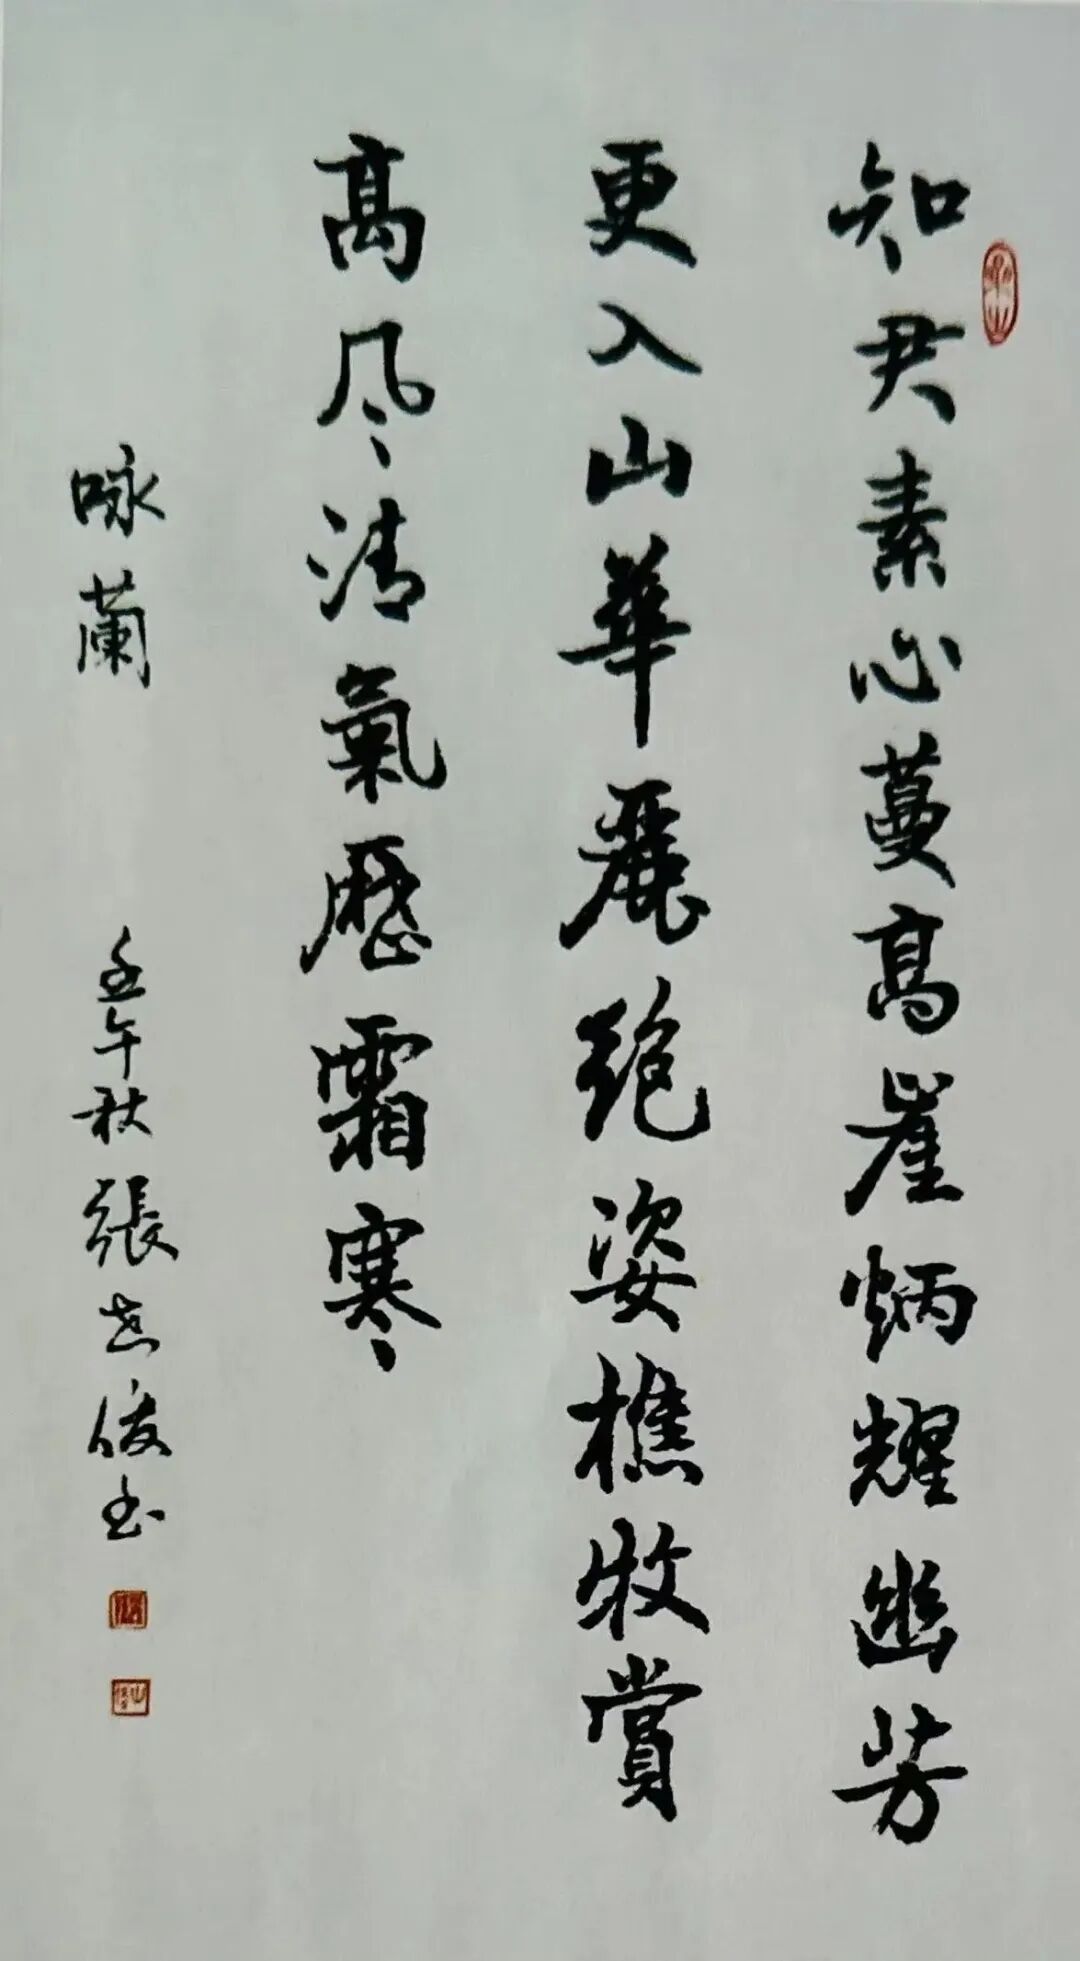 知君素心蔓高崖炳耀幽芳
更入山華麗絕姿樵牧賞
高风清氣歷霜寒
咏蘭
壬午秋張志俊书